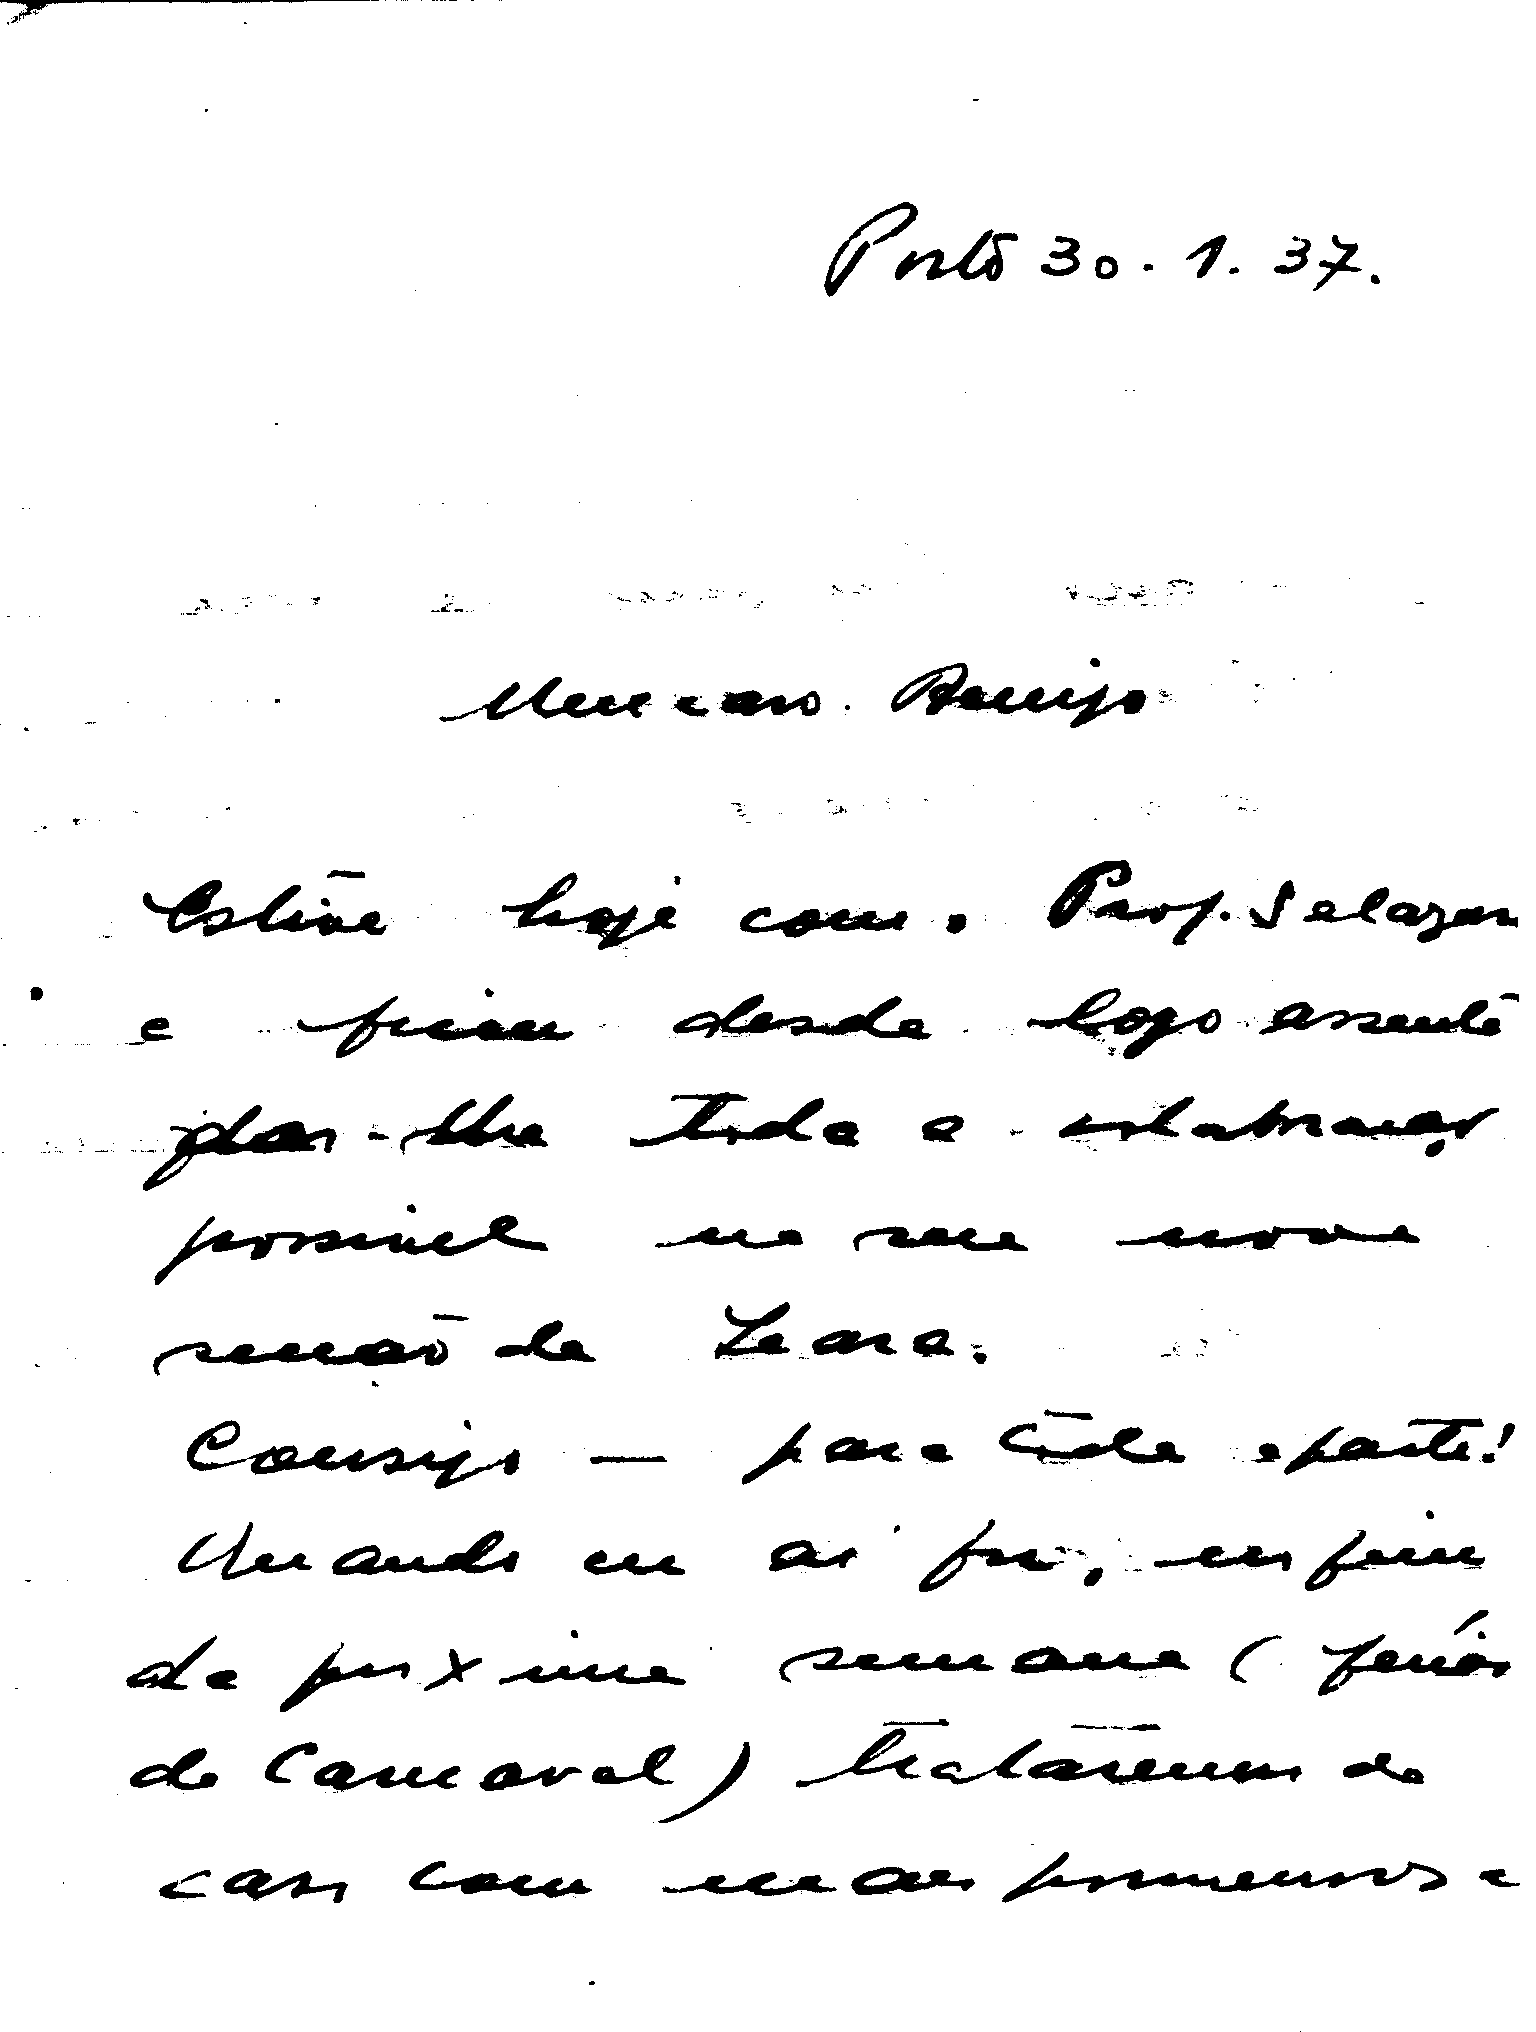 Porto 30.1.37.
Meu caro Amigo
Estive hoje com o Prof. Salazar
e ficou desde logo assente
dar-lhe toda a colaboração
possivel na sua nova
secção da Seara.
Consigo — para toda a parte!
Quando eu aí fôr, no fim
da proxima semana (férias
do Carnaval) trataremos do
caso com mais pormenores e